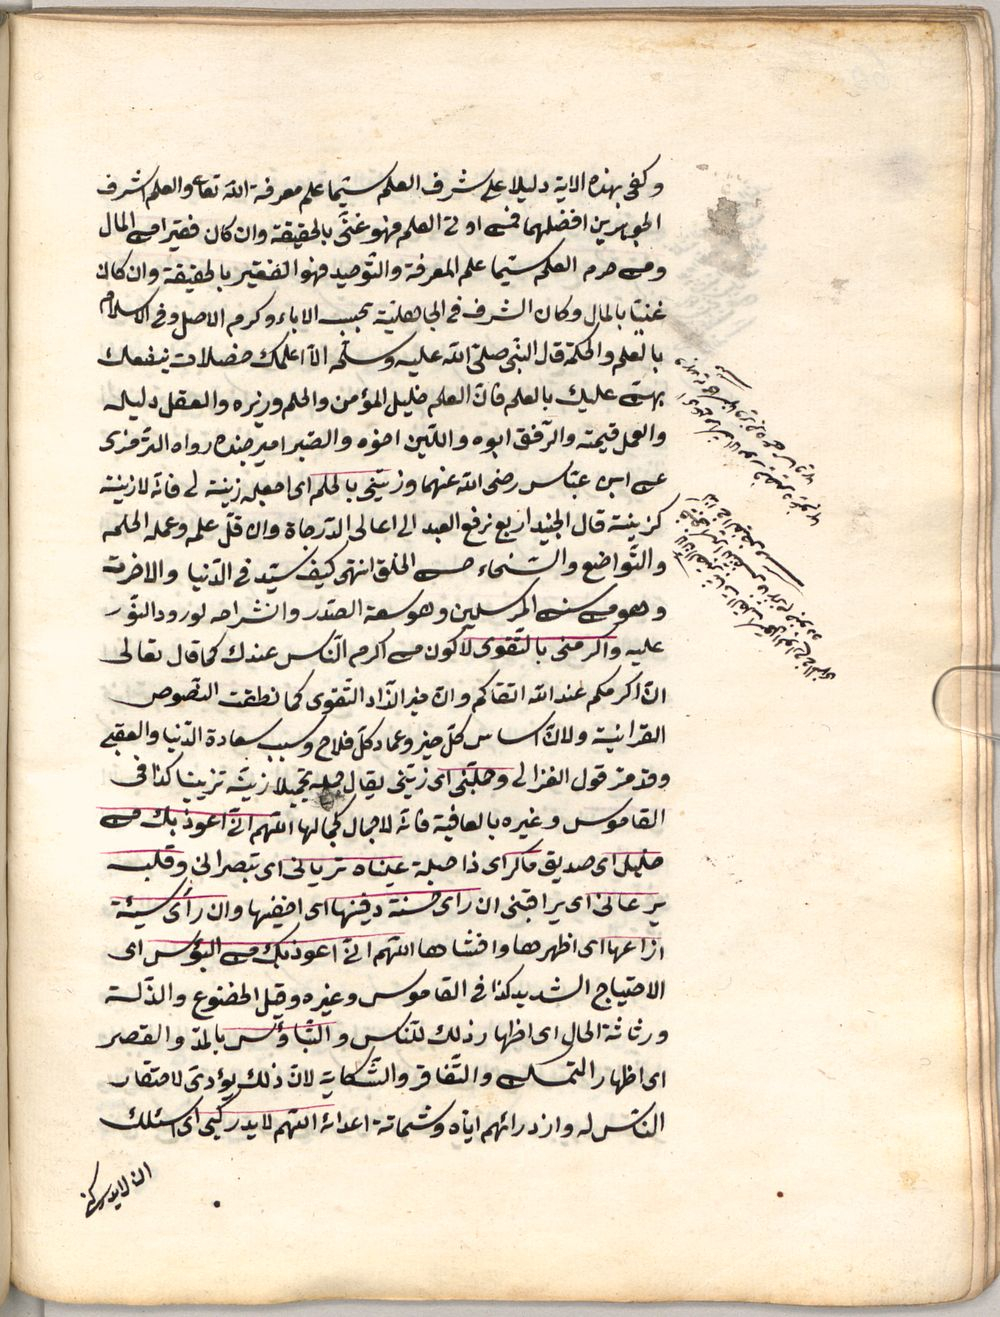 وكفى بهذه الاية دليلا على شرف العلم سيما علم معرفة الله تعا والعلم اشرف
الجوهرين افضلهما فمن اوتى العلم فهو غنى بالحقيقة وان كان فقيرا من المال
ومن حرم العلم سيما علم المعرفة والتوحيد فهو الفقير بالحقيقة وان كان
غنيا بالمال وكان الشرف في الجاهلية بحسب الاباء وكرم الاصل وفي الاسلام
بالعلم والحكمة قال النبي صلى الله عليه وسلم الا اعلمك خصلات ينفعك
بهن عليك بالعلم فان العلم خليل المؤمن والحلم وزيره والعقل دليله
والعمل قيمته والرفق ابوه واللين اخوه والصبر امير جنده رواه الترمزى
عن ابن عباس رضى الله عنهما وزينى بالحلم اى اجعله زينة لى فانه لا زينة
كزينته قال الجنيد اربع ترفع العبد الى اعالى الدرجاة وان قل علمه وعمله الحلم
والتواضع والسخاء حسن الخلق انتهى كيف سيد في الدنيا والاخرة
وهو من سنن المرسلين وهو سعة الصدر وانشراحه لورود النور
عليه واكرمنى بالتقوى لاكون من اكرم الناس عندك كما قال تعالى
ان اكرمكم عند الله اتقاكم وان خير الزاد التقوى كما نطقت النصوص
القرانية ولان اساس كل خير وعماد كل فلاح وسبب سعادة الدنيا والعقبى
وقد مر قول الغزالى وجملنى اى زينى يقال جمله تجميلا زينه تزيينا كذا في
القاموس وغيره بالعافية فانه لا جمال كجمالها اللهم انى اعوذ بك من
خليل اى صديق ماكر اى ذا حيلة عيناه تريانى اى تبصرانى وقلبه
يرعانى اى يراقبنى ان راى حسنة دفنها اى اخفيها وان رأى سيئة
اذاعها اى اظهرها وافشاها اللهم انى اعوذ بك من البؤس اى
الاحتياج الشديد كذا في القاموس وغيره وقيل الخضوع والذلة
ورثاثة الحال اى اظهار ذلك للناس والتباؤس بالمد والقصر
اى اظهار التمسكن والتفاقر والشكاية لان ذلك يؤدى لاحتقار
الناس له وازدرائهم اياه وشماتة اعدائه اللهم لا يدركنى اى اسئلك
ان لا يدركنى